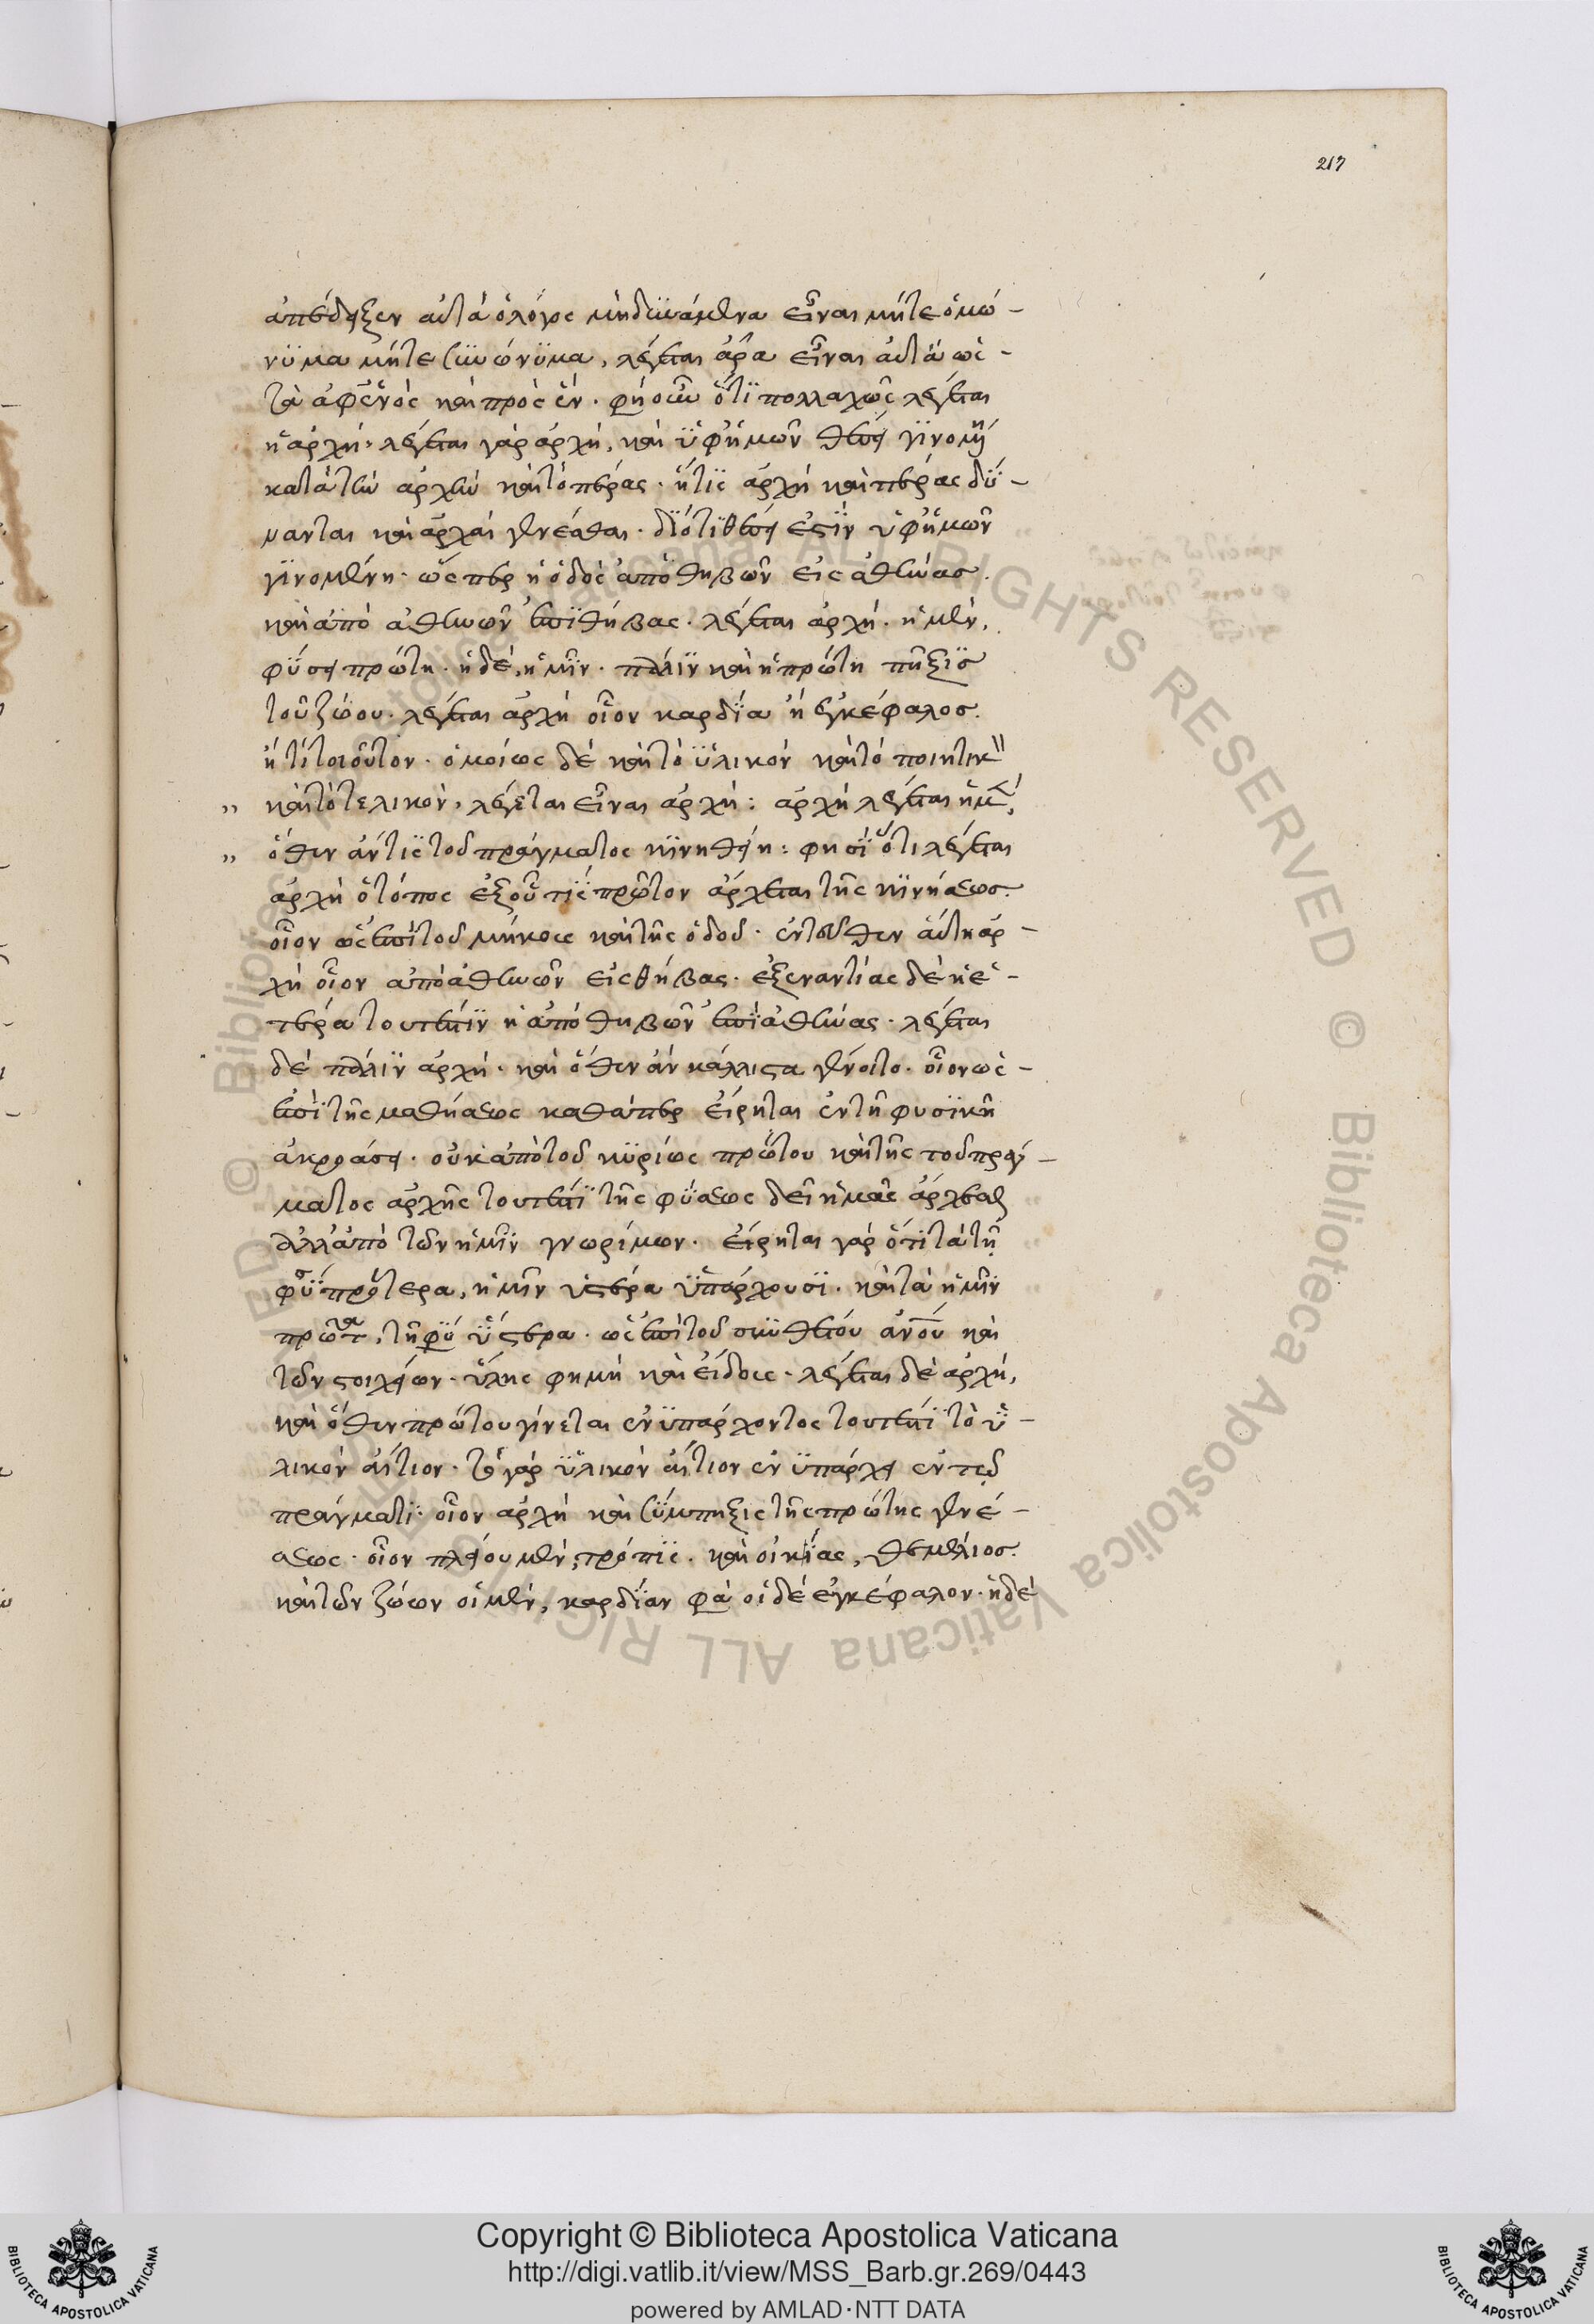 217
ἀπέδειξεν αὐτὰ ὁ λόγος μὴ δυνάμενα εἶναι μήτε ὁμώ-
νυμα μήτε συνώνυμα, λέγεται ἄρα εἶναι αὐτὰ ὡς
τὰ ἀφ' ἑνὸς καὶ πρὸς ἕν. φησὶν ὅτι πολλαχῶς λέγεται
ἡ ἀρχή. λέγεται γὰρ ἀρχή, καὶ ὑφ' ἡμῶν θέσει γινομένη
κατὰ τὴν ἀρχὴν καὶ τὸ πέρας. ἥτις ἀρχὴ καὶ πέρας δύ-
νανται καὶ ἀρχαὶ γενέσθαι. διότι θέσει ἐστὶν ὑφ' ἡμῶν
γινομένη. ὥσπερ ἡ ὁδὸς ἀπὸ θηβῶν εἰς ἀθήνας.
καὶ ἀπὸ ἀθηνῶν ἐπὶ θήβας. λέγεται ἀρχή. ἡ μὲν,
φύσει πρώτη. ἡ δὲ, ἡμῖν. πάλιν καὶ ἡ πρώτη πῆξις
τοῦ ζώου. λέγεται ἀρχὴ οἷον καρδία ἢ ἐγκέφαλος.
ἤ τι τοιοῦτον. ὁμοίως δὲ καὶ τὸ ὑλικὸν καὶ τὸ ποιητικὸν
" καὶ τὸ τελικὸν, λέγεται εἶναι ἀρχή: ἀρχὴ λέγεται ἡ μὲν,
" ὅθεν ἄν τις τοῦ πράγματος κινηθείη: φησὶ ὅτι λέγεται
ἀρχὴ ὁ τόπος ἐξ οὗ τις πρῶτον ἄρχεται τῆς κινήσεως.
οἷον ὡς ἐπὶ τοῦ μήκους καὶ τῆς ὁδοῦ. ἐντεῦθεν αὕτη ἀρ-
χὴ οἷον ἀπὸ ἀθηνῶν εἰς θήβας. ἐξ ἐναντίας δὲ ἡ ἑ-
τέρα τουτέστιν ἡ ἀπὸ θηβῶν ἐπὶ ἀθήνας. λέγεται
δὲ πάλιν ἀρχή. καὶ ὅθεν ἂν κάλλιστα γένοιτο. οἷον ὡς
ἐπὶ τῆς μαθήσεως καθάπερ εἴρηται ἐν τῇ φυσικῇ
ἀκροάσει. οὐκ ἀπὸ τοῦ κυρίως πρώτου καὶ τῆς τοῦ πράγ-
ματος ἀρχῆς τουτέστι τῆς φύσεως δεῖ ἡμᾶς ἄρχεσθαι
ἀλλ' ἀπὸ τῶν ἡμῖν γνωρίμων. εἴρηται γὰρ ὅτι τὰ τῇ
φύσει πρότερα, ἡμῖν ὕστερα ὑπάρχουσι. καὶ τὰ ἡμῖν
πρῶτα, τῇ φύσει ὕστερα. ὡς ἐπὶ τοῦ συνθέτου ἀνου καὶ
τῶν στοιχείων. ὕλης φημὶ καὶ εἴδους. λέγεται δὲ ἀρχή,
καὶ ὅθεν πρώτου γίνεται ἐνυπάρχοντος τουτέστι τὸ ὑ-
λικὸν αἴτιον. τὸ γὰρ ὑλικὸν αἴτιον ἐνυπάρχει ἐν τῷ
πράγματι. οἷον ἀρχὴ καὶ σύμπηξις τῆς πρώτης γενέ-
σεως. οἷον πλοίου μὲν, τρόπις. καὶ οἰκίας, θεμέλιος.
καὶ τῶν ζώων οἱ μὲν, καρδίαν φα οἱ δὲ ἐγκέφαλον. ἡ δὲ
Copyright © Biblioteca Apostolica Vaticana
http://digi.vatlib.it/view/MSS_Barb.gr.269/0443
powered by AMLAD·NTT DATA